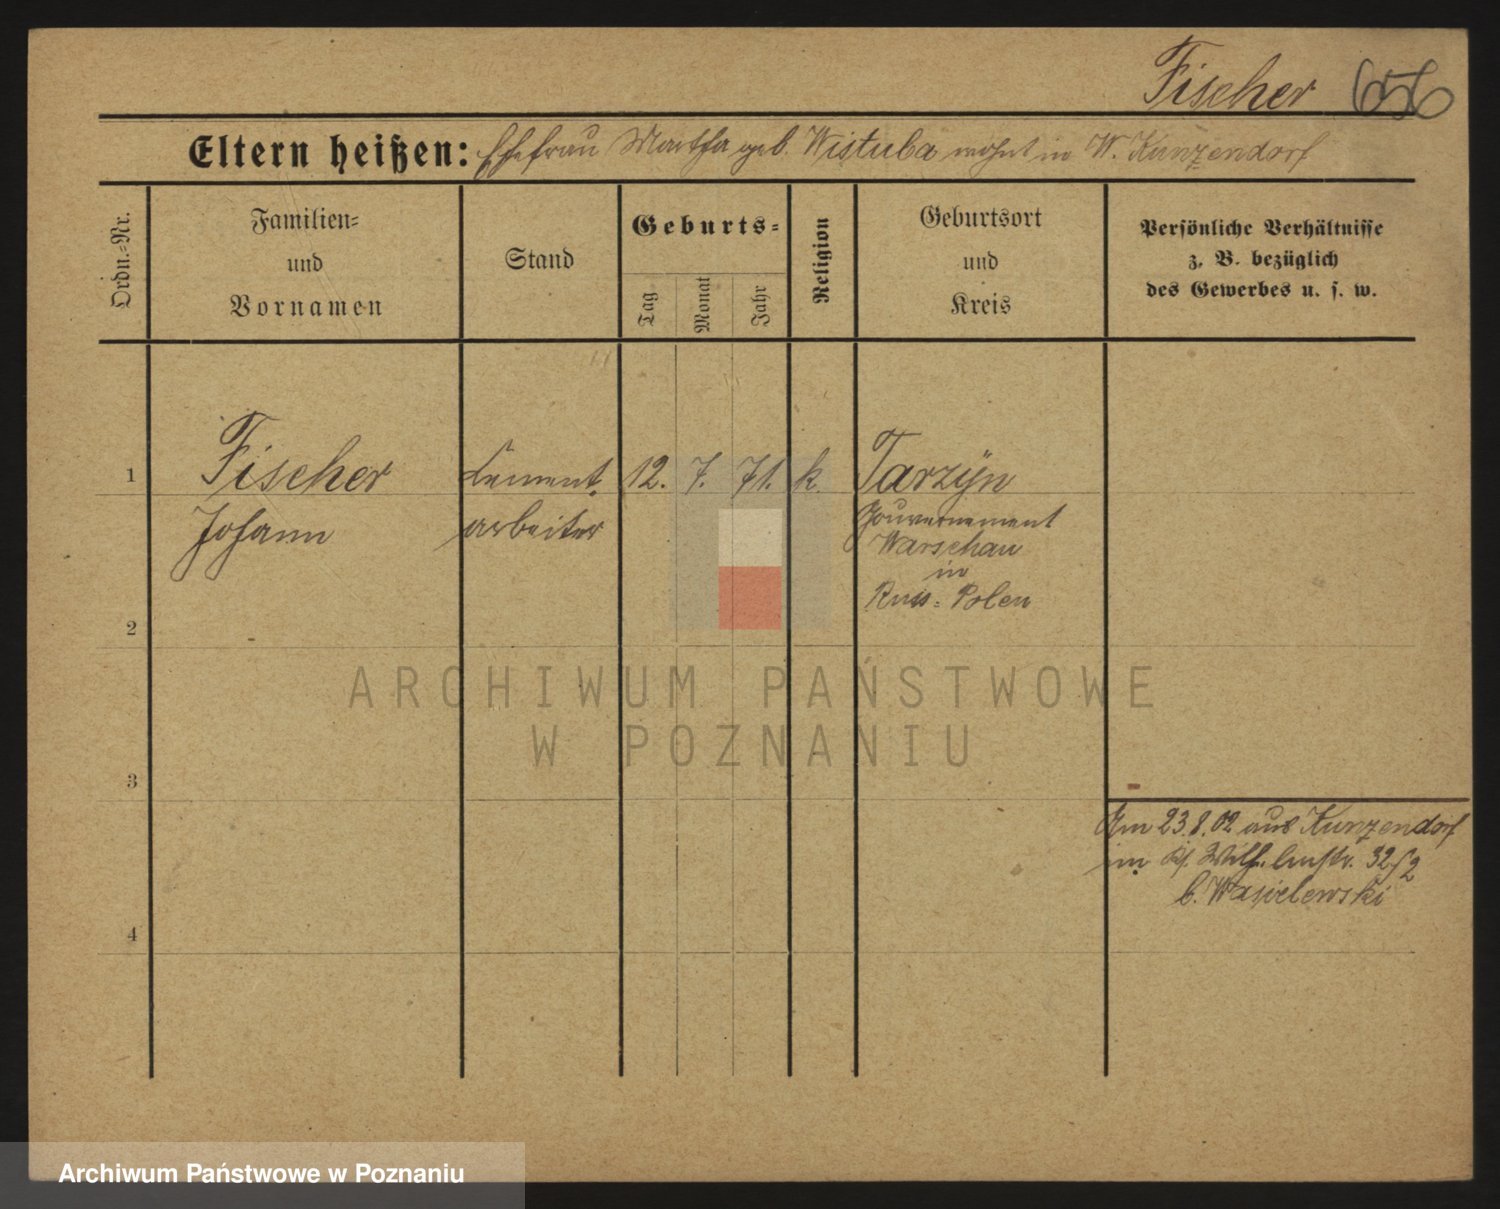 Fischer 656
Eltern heißen: Ehefrau Martha geb. Wistuba wohnt in W. Kunzendorf
Ordn.-Nr.
Familien-
und
Vornamen
Stand
Geburts-
Tag
Monat
Jahr
Religion
Geburtsort
und
Kreis
Persönliche Verhältnisse
z. B. bezüglich
des Gewerbes u. s. w.
1 Fischer Cement 12. 7. 71. k. Tarzÿn
Johann arbeiter Gouvernement
Warschau
in
Russ. Polen
2
ARCHIWUM PAŃSTWOWE
W POZNANIU
3
Am 23.8.02 aus Kunzendorf
Wilhelmstr. 32
b. Wasielewski
4
Archiwum Państwowe w Poznaniu